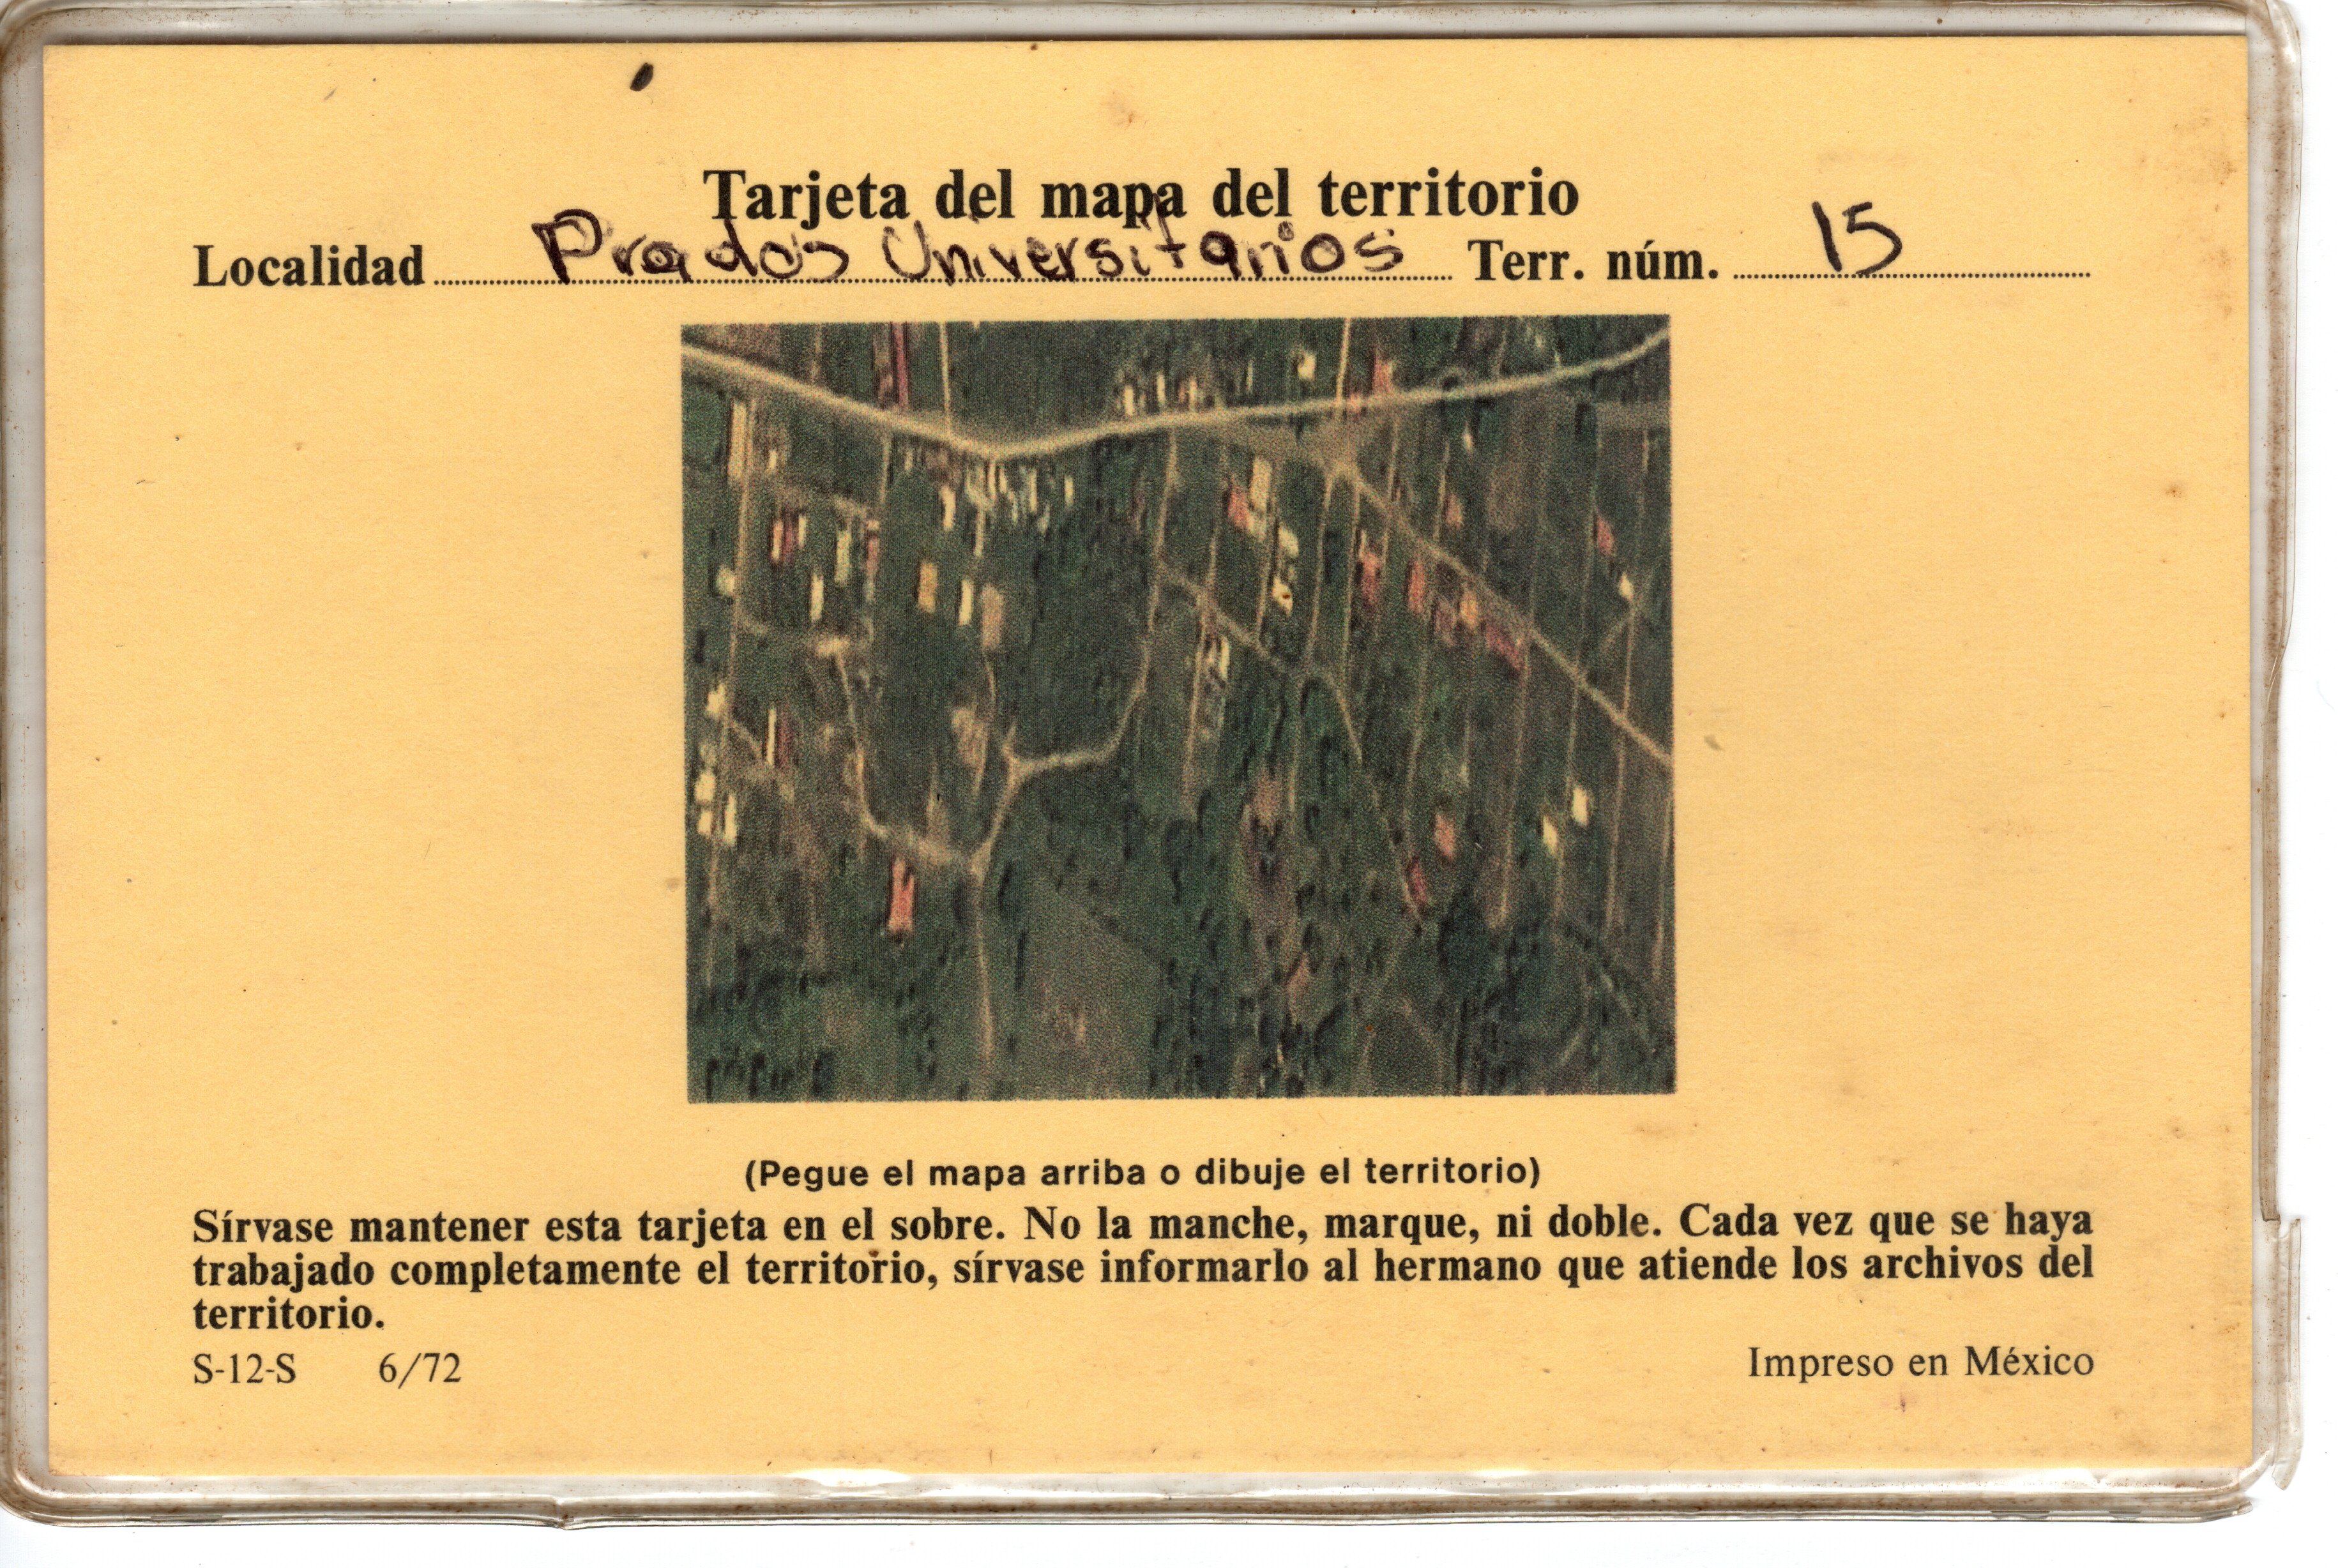 Tarjeta del mapa del territorio
Localidad Prados Universitarios Terr. núm. 15
(Pegue el mapa arriba o dibuje el territorio)
Sírvase mantener esta tarjeta en el sobre. No la manche, marque, ni doble. Cada vez que se haya
trabajado completamente el territorio, sírvase informarlo al hermano que atiende los archivos del
territorio.
S-12-S 6/72 Impreso en México